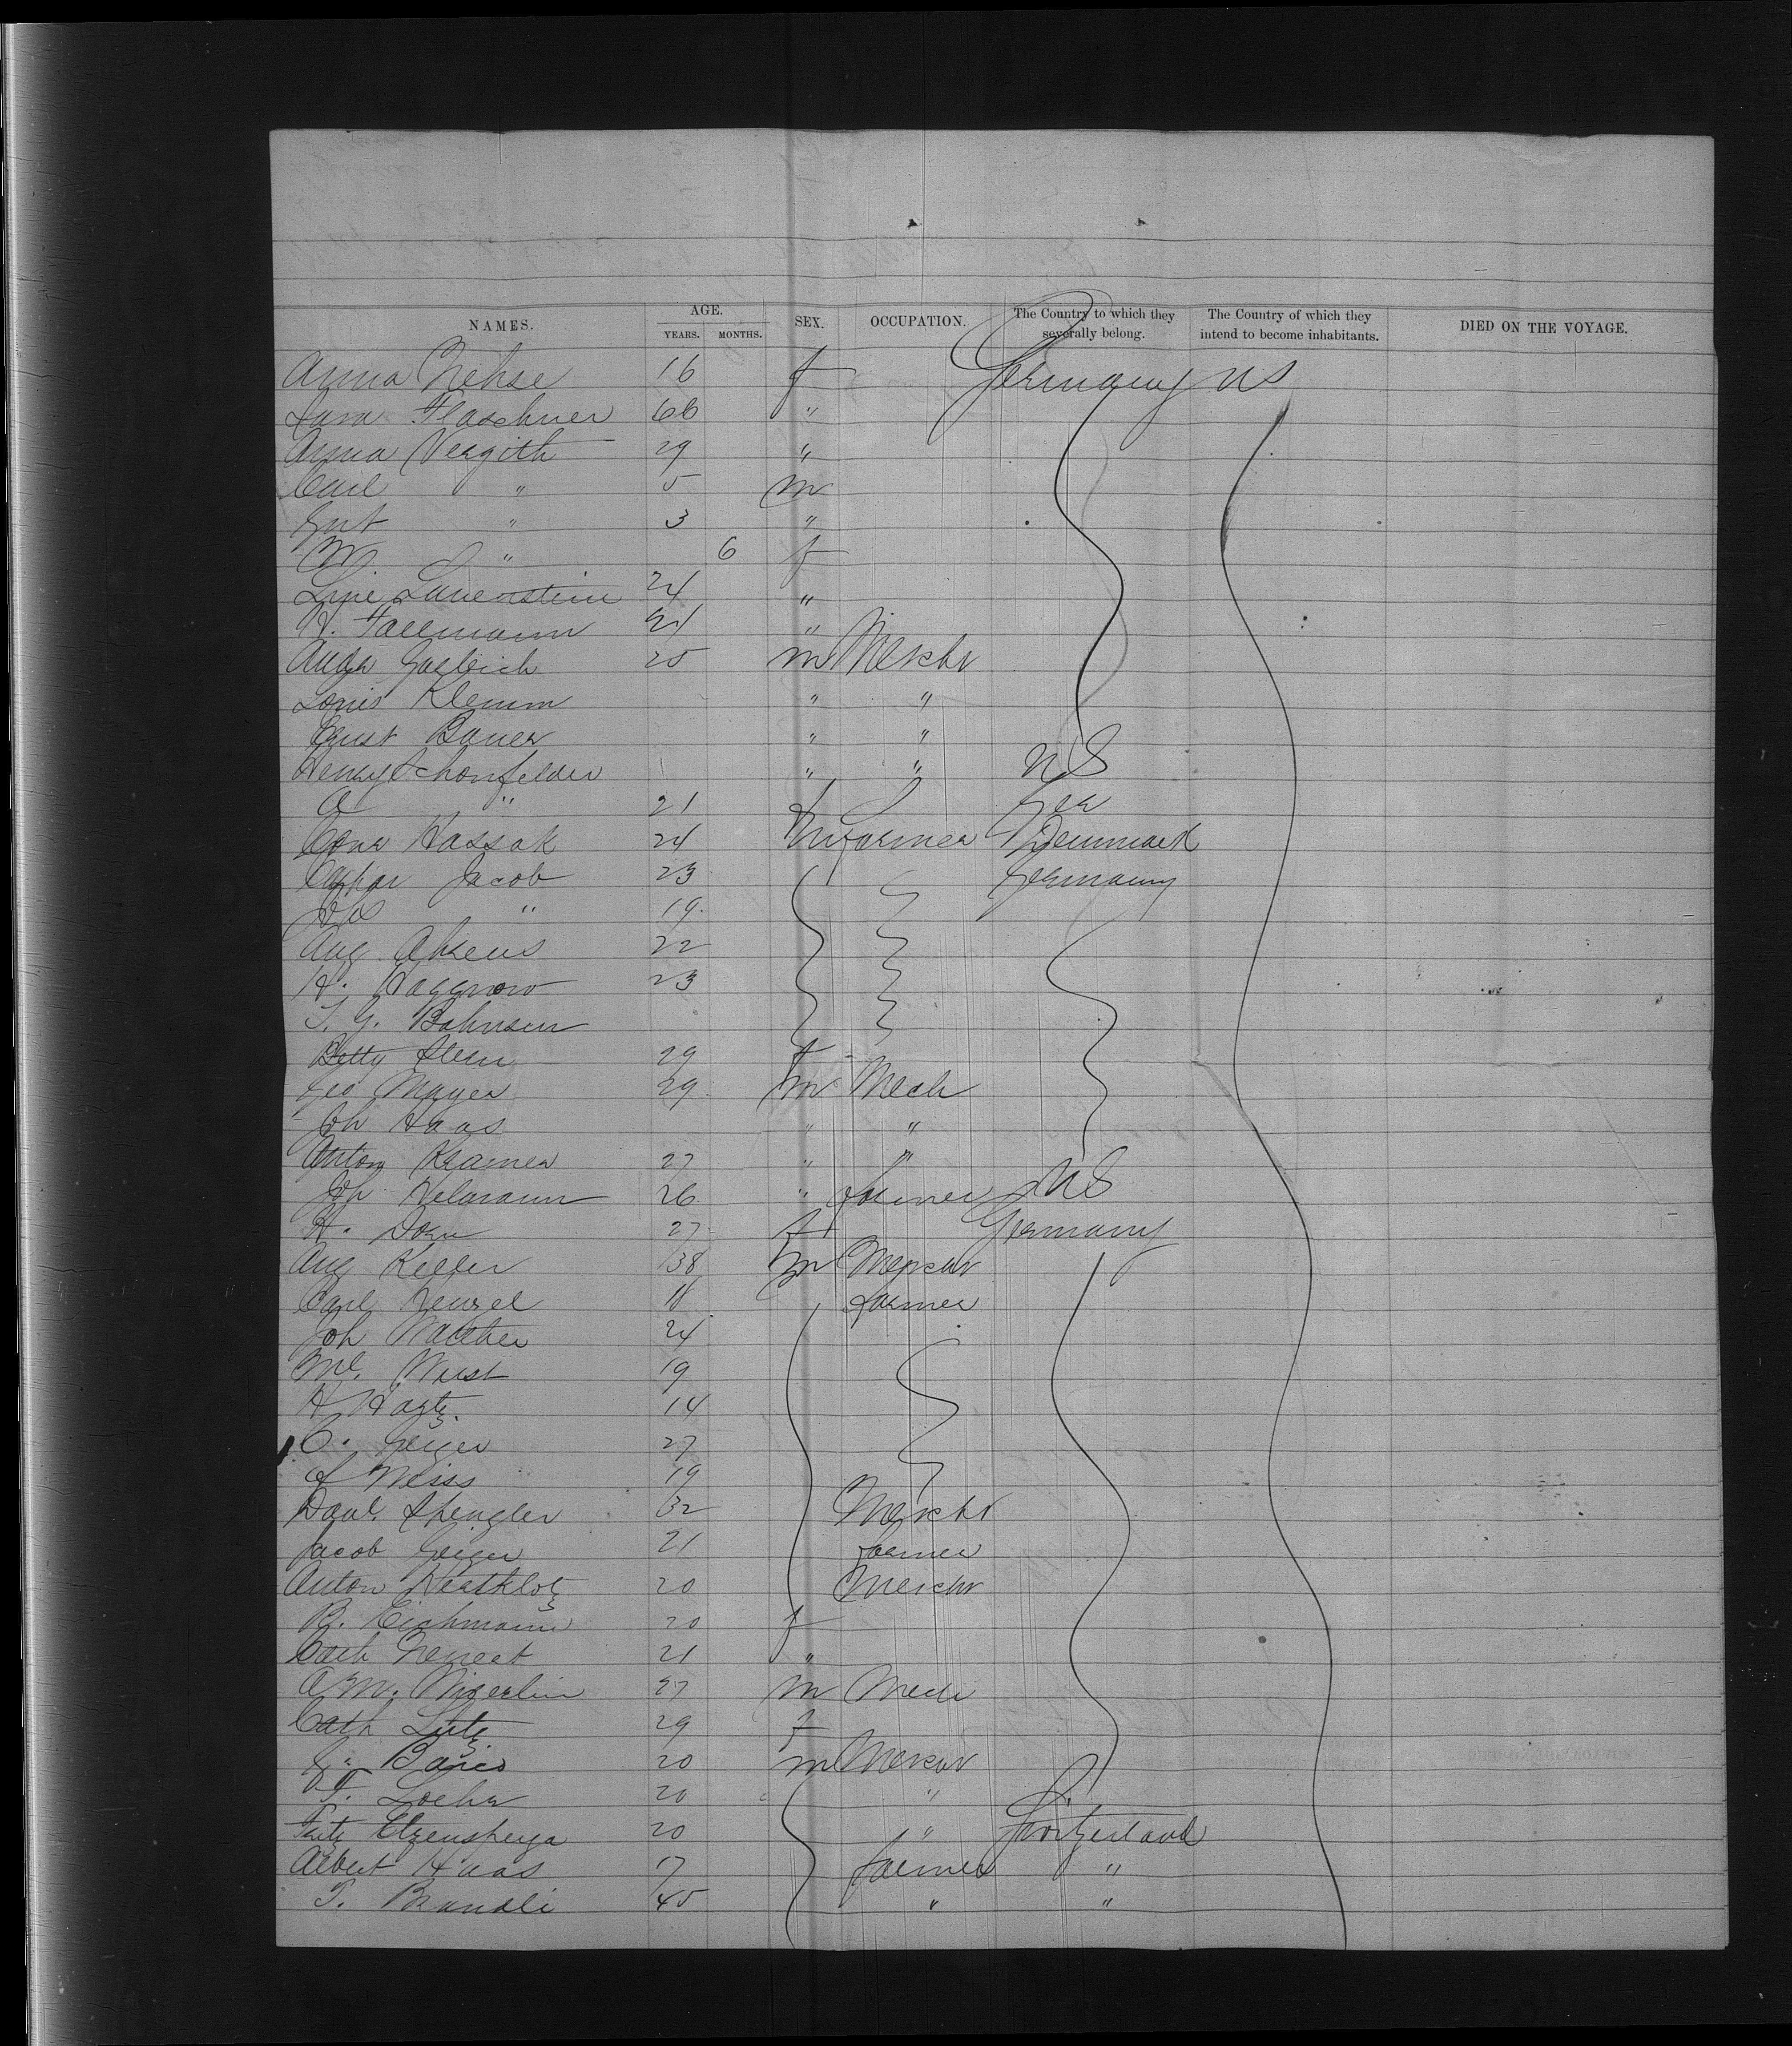 NAMES. AGE. YEARS. MONTHS. SEX. OCCUPATION. The Country to which they severally belong. The Country of which they intend to become inhabitants. DIED ON THE VOYAGE.
Anna Nehse 16 f Germany US
Flaschner 66 "
Anna Vergith 29 "
Carl " 5 m
" 3 "
M. " 6 f
Line Lauenstein 24 "
H. Fallmann 21 "
25 m Mercht
Louis Klemm " "
Ernst Bauer " "
Henry Schonfelder " " US
A " 21 f Ger
Hassak 24 m farmer Denmark
Jacob 23 Germany
" 19
Aug Ahrens 22
H. 23
Bahnsen
Betty Stern 29 f
Geo Mayer 29 m Mech
Joh Haas " "
Anton Kramer 27 " "
Joh Helmann 26 " farmer US
H. Dorn 27 f Germany
Aug Keller 38 m Mercht
Carl Wenzel 18 farmer
Joh Walther 24
Wust 19
H 14
C. Geiger 27
Weiss 19
Danl. Spengler 32 Mercht
Jacob Geiger 21 farmer
Anton 20 Mercht
R. Eichmann 20 f
Cath 21 "
A M. 27 m Mech
Cath Lutz 29 f
20 m Mercht
F. Locher 20 "
Fritz 20 " Switzerland
Albert Haas 17 farmer "
T. Brandli 45 " "